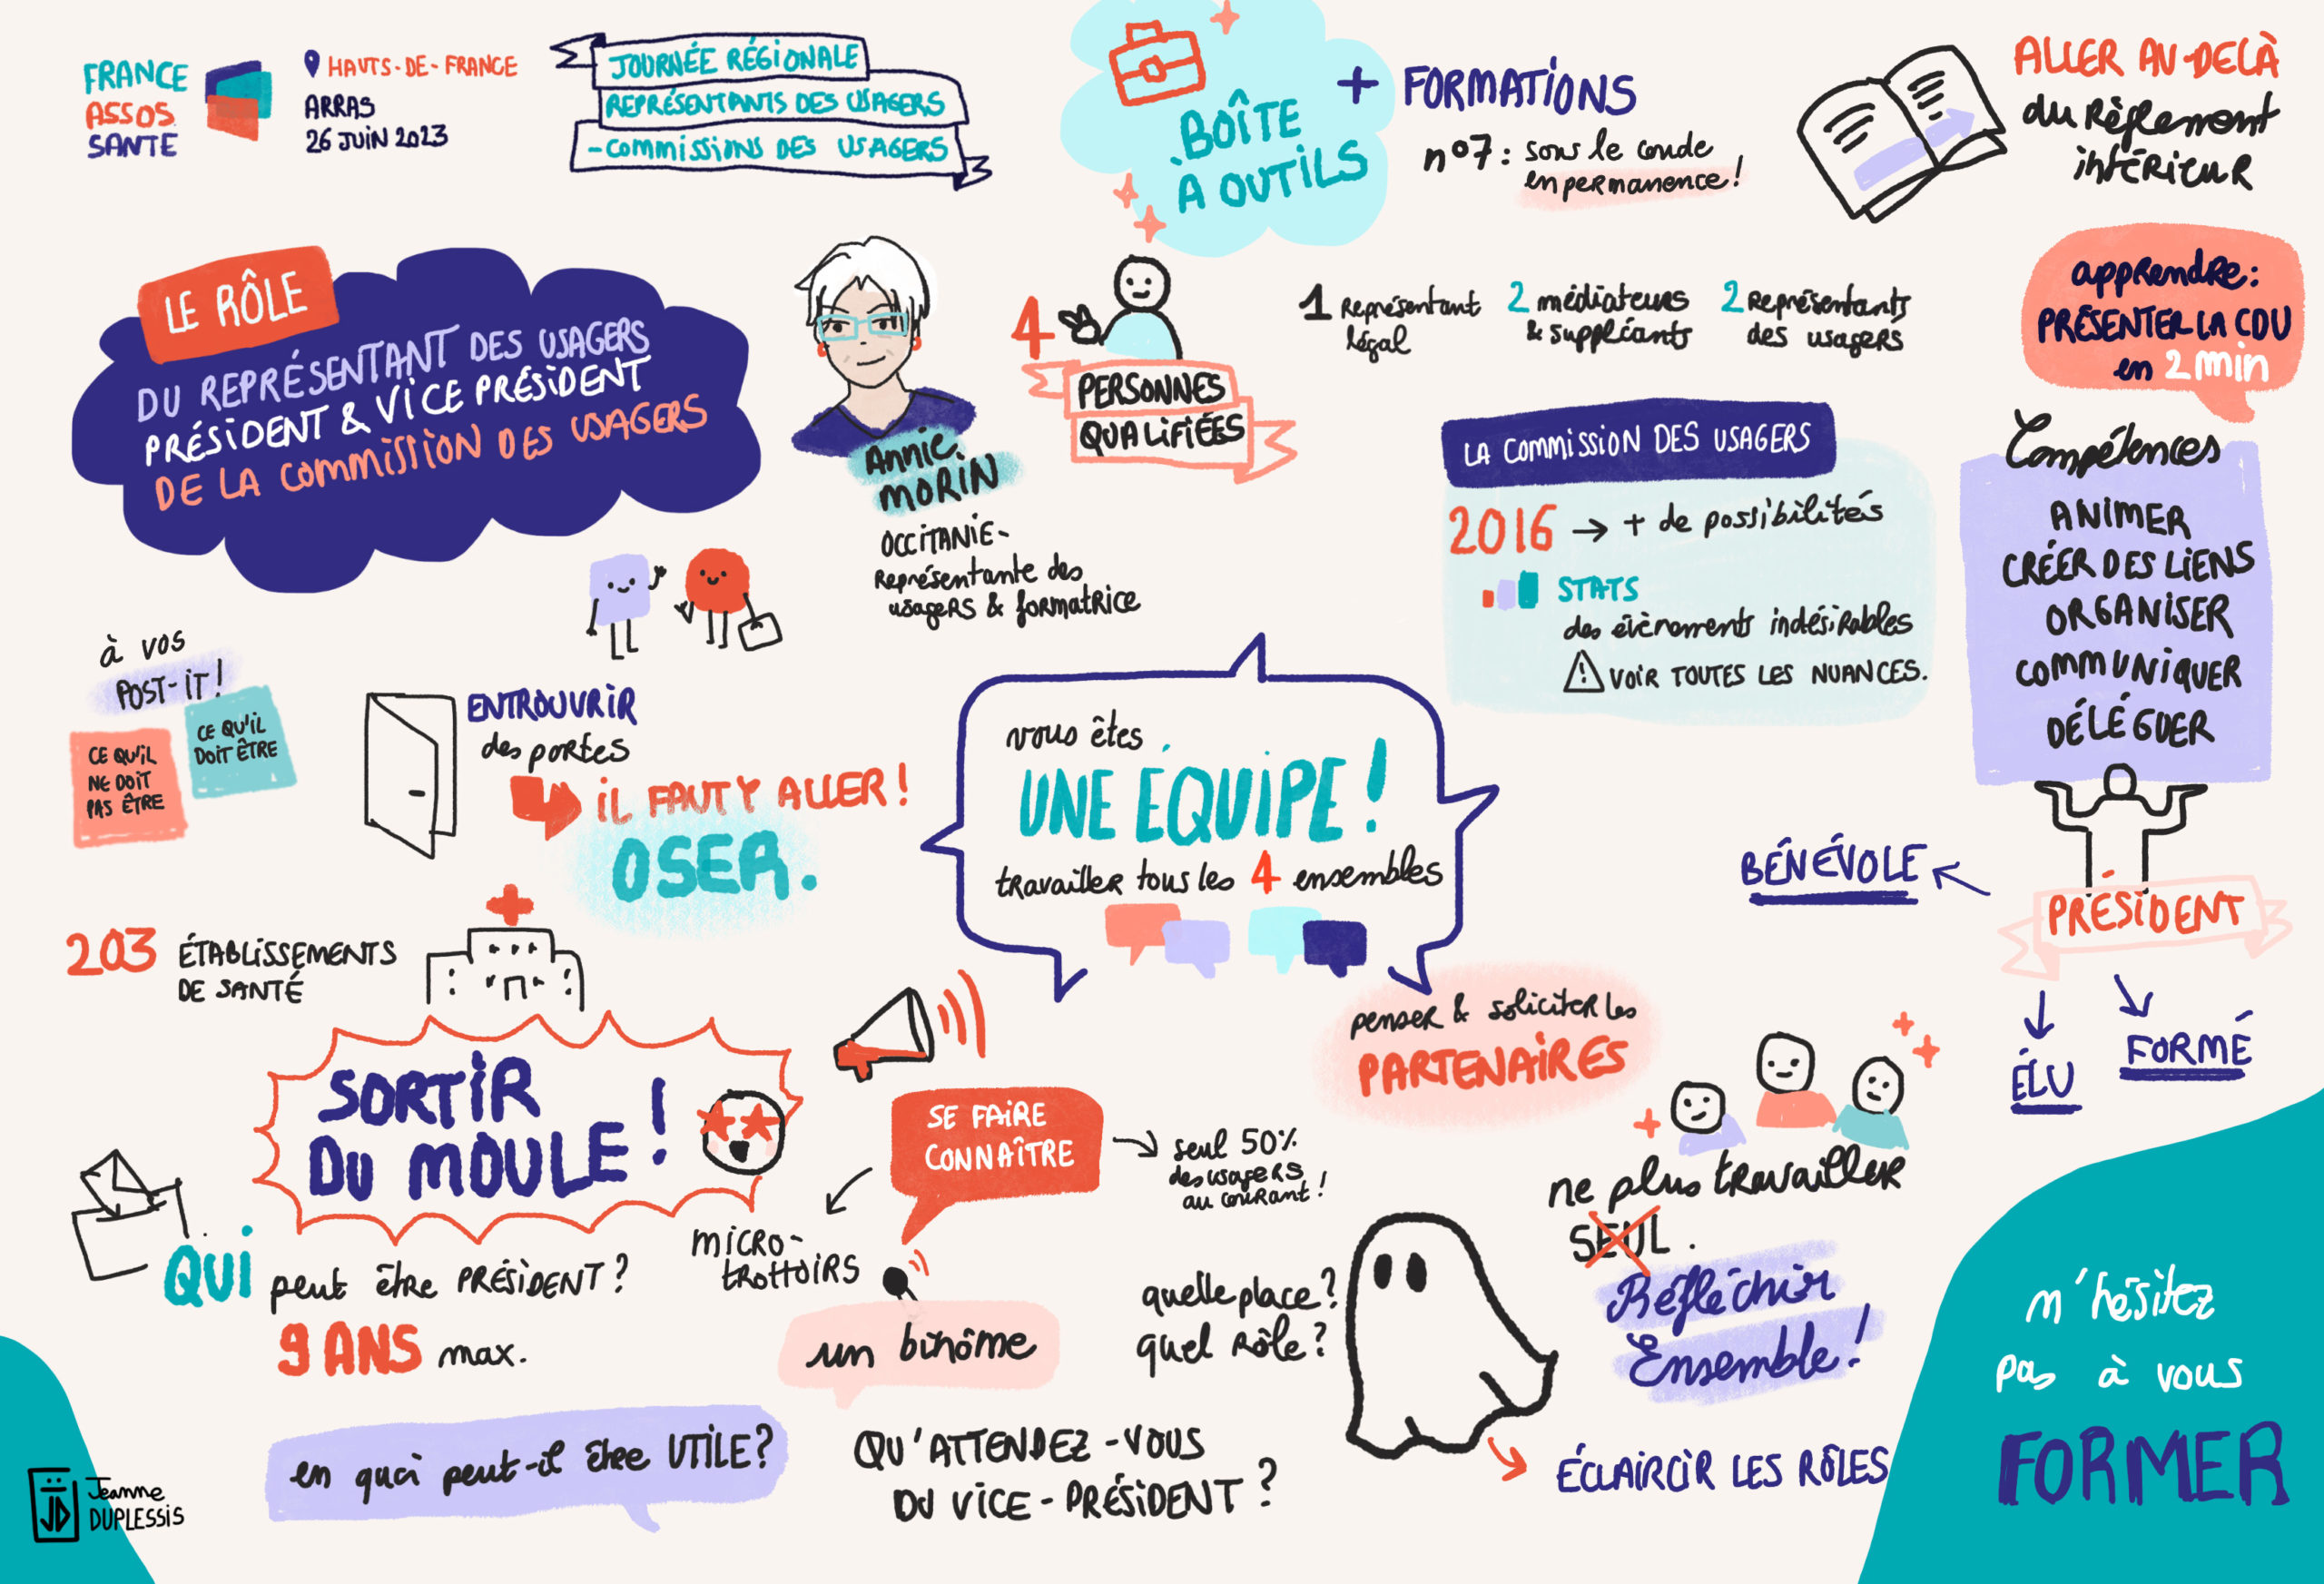 FRANCE
ASSOS
SANTE
HAUTS-DE-FRANCE
ARRAS
26 JUIN 2023
JOURNÉE RÉGIONALE
REPRÉSENTANTS DES USAGERS
-COMMISSIONS DES USAGERS
BOÎTE
À OUTILS
+ FORMATIONS
n°7: sous le coude
en permanence!
ALLER AU-DELÀ
du Règlement
intérieur
LE RÔLE
DU REPRÉSENTANT DES USAGERS
PRÉSIDENT & VICE PRÉSIDENT
DE LA COMMISSION DES USAGERS
Annie
MORIN
OCCITANIE-
Représentante des
usagers & formatrice
4
PERSONNES
QUALIFIÉES
1 Représentant
légal
2 médiateurs
& suppléants
2 Représentants
des usagers
apprendre:
PRÉSENTER LA CDU
en 2 min
LA COMMISSION DES USAGERS
2016 → + de possibilités
STATS
des évènements indésirables
VOIR TOUTES LES NUANCES.
Compétences
ANIMER
CRÉER DES LIENS
ORGANISER
COMMUNIQUER
DÉLÉGUER
à vos
POST-IT!
CE QU'IL
NE DOIT
PAS ÊTRE
CE QU'IL
DOIT ÊTRE
ENTROUVRIR
des portes
IL FAUT Y ALLER!
OSER.
vous êtes
UNE ÉQUIPE!
travailler tous les 4 ensembles
BÉNÉVOLE
PRÉSIDENT
ÉLU
FORMÉ
203 ÉTABLISSEMENTS
DE SANTÉ
SORTIR
DU MOULE!
penser & soliciter les
PARTENAIRES
SE FAIRE
CONNAÎTRE
seul 50%
des usagers
au courant!
MICRO-
TROTTOIRS
ne plus travailler
SEUL.
Réfléchir
Ensemble!
QUI peut être PRÉSIDENT?
9 ANS max.
un binôme
quelle place?
quel rôle?
en quoi peut-il être UTILE?
QU'ATTENDEZ-VOUS
DU VICE-PRÉSIDENT?
ÉCLAIRCIR LES RÔLES
n'hésitez
pas à vous
FORMER
JD
Jeanne
DUPLESSIS